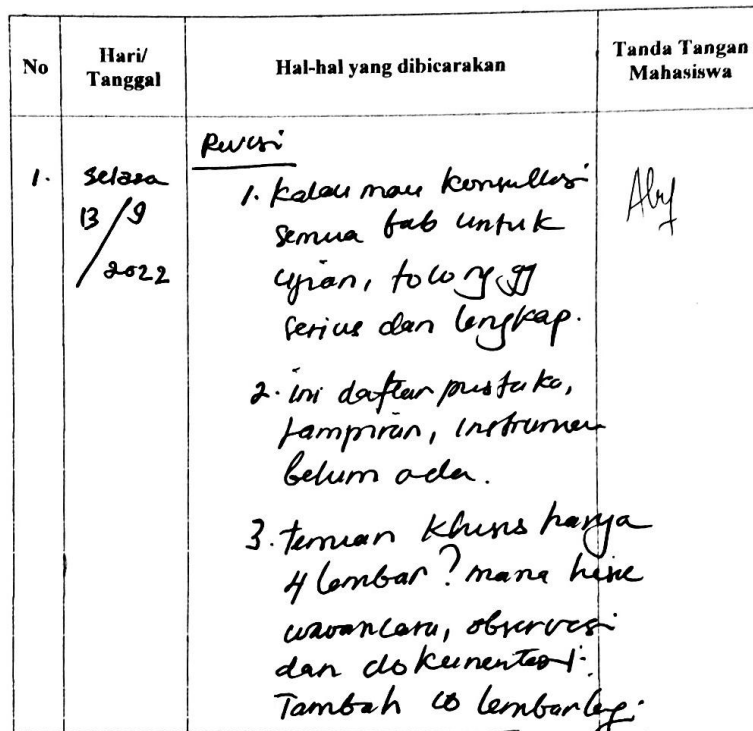 No
Hari/
Tanggal
Hal-hal yang dibicarakan
Tanda Tangan
Mahasiswa
1.
Selasa
13/9
/2022
Revisi
1. Kalau mau konsultasi
semua bab untuk
ujian, tolong yg
serius dan lengkap.
2. ini daftar pustaka,
lampiran, instrumen
belum ada.
3. temuan khusus hanya
4 lembar? mana hasil
wawancara, observasi
dan dokumentasi.
Tambah lembar lagi